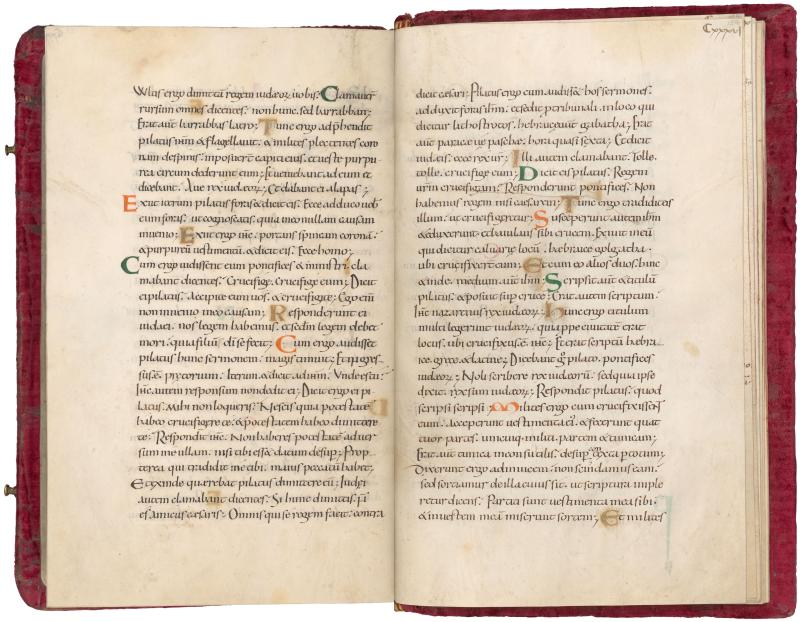 Vultis ergo dimittā regem iudæoꝝ uobis; Clamauer̄
rursum omnes dicentes. non hunc. sed barraban;
Erat aūt barrabbas latro; Tunc ergo adp̄hendit
pilatus ih̄m & flagellauit. & milites plectentes coro
nam despinis. inposuer̄t capiti eius. et ueste purpu
rea circum dederunt eum; Et ueniebant ad eum et
dicebant. Aue rex iudæoꝝ; Et dabant ei alapas;
Exiit iterum pilatus foras & dicit eis. Ecce adduco uob̄
eum foras. ut cognoscatis. quia in eo nullam causam
inuenio; Exiit ergo ih̄c. portans spineam coronā
& purpureū uestimentū. & dicit eis. Ecce homo;
Cum ergo uidissent eum pontifices & ministri. cla
mabant dicentes. Crucifige. crucifige eum; Dicit
ei pilatus. Accipite eum uos. & crucifigite; Ego enī
non inuenio in eo causam; Responderunt ei
iudaei. nos legem habemus. et sedm̄ legem debet
mori. quia filiū di se fecit; Cum ergo audisset
pilatus hunc sermonem. magis timuit; Et ingres
sus ē p̄torium. Iterum. & dicit ad ih̄m. Unde es tu;
Ih̄c. autem responsum non dedit ei; Dicit ergo ei pi
latus. Mihi non loqueris. Nescis quia potestatē
habeo crucifigere te. & potestatem habeo dimittere
te; Respondit ih̄c. Non haberes potestatē aduer
sum me ullam. nisi tibi esset datum desup; Prop
terea qui tradidit me tibi. maius peccatū habet;
Et exinde querebat pilatus dimittere eū; Iudæi
autem clamabant dicentes. Si hunc dimittis. n̄
es amicus cæsaris; Omnis qui se regem facit. contra
Cxxxvi
dicit cæsari; Pilatus ergo cum audisset hos sermones.
adduxit foras ih̄m. et sedit p tribunali. in loco qui
dicitur lithostrotos. hebraice aūt gabatha; Erat
aūt parasceue pasche. hora quasi sexta; Et dicit
iudæis. ecce rex ur̄; Illi autem clamabant. Tolle.
tolle. crucifige eum; Dicit eis pilatus. Regem
ur̄m crucifigam; Responderunt pontifices. Non
habemus regem nisi cæsarem; Tunc ergo tradidit eis
illum. ut crucifigeretur; Susceperunt autem ih̄m
& eduxerunt. et baiulans sibi crucem. Exiuit in eū
qui dicitur caluarie locū. hæbraice golgatha.
ubi crucifixert eum; Et cum eo alios duos. hinc
& inde. medium aūt ih̄m; Scripsit aūt & titulū
pilatus. & posuit sup cruce; Erat autem scriptum.
Ih̄c nazarenus rex iudæoꝝ; Hunc ergo titulum
multi legerunt iudæoꝝ. quia ppe ciuitatē erat
locus. ubi crucifixus ē. ih̄c; Et erat scriptū hebra
ice. grece. & latine; Dicebant g pilato. pontifices
iudæoꝝ; Noli scribere rex iudæorū; sed quia ipse
dixit. rex sum iudæoꝝ; Respondit pilatus; quod
scripsi scripsi; Milites ergo cum crucifixissent
eum. Acceperunt uestimenta eī. & fecerunt quat
tuor partes. unicuiq. militi partem & tunicam;
Erat aūt tunica inconsutilis. desup contexta p totum;
Dixerunt ergo ad inuicem. non scindamus eam.
sed sortiamur de illa cuius sit. ut scriptura imple
retur dicens. Partiti sunt uestimenta mea sibi.
& in uestem meā miserunt sortem; Et milites